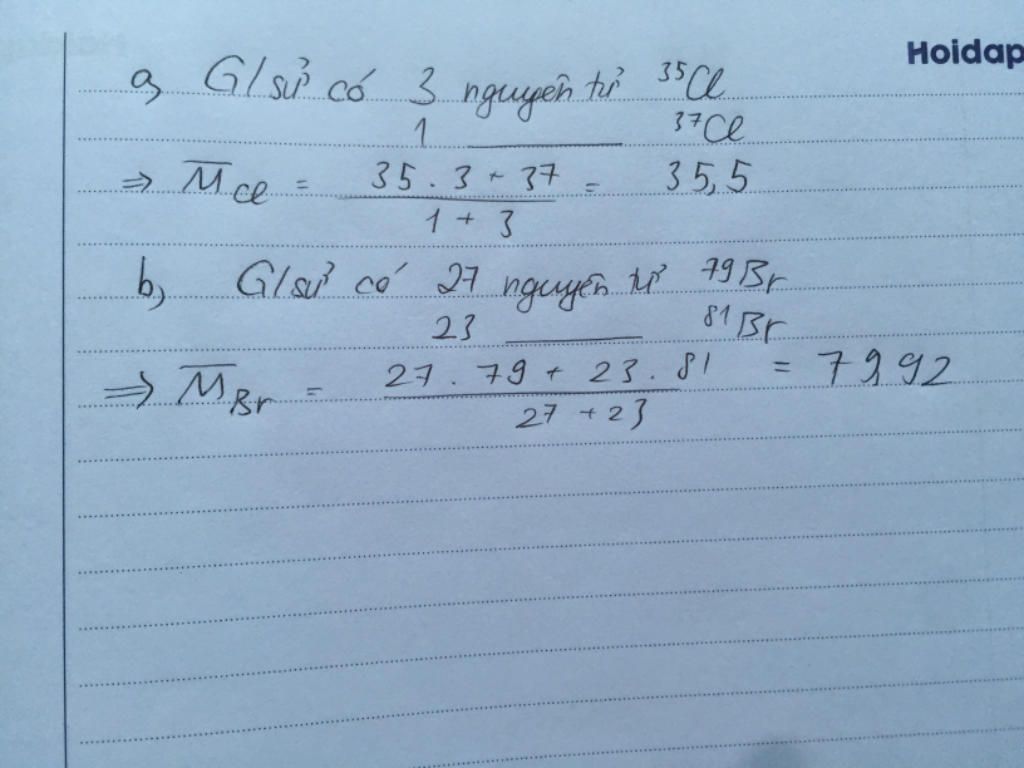 Hoidap
a, G/sử có 3 nguyên tử ³⁵Cl
1 ______ ³⁷Cl
=> M̅Cl = (35 . 3 + 37) / (1 + 3) = 35,5
b, G/sử có 27 nguyên tử ⁷⁹Br
23 ______ ⁸¹Br
=> M̅Br = (27 . 79 + 23 . 81) / (27 + 23) = 79,92